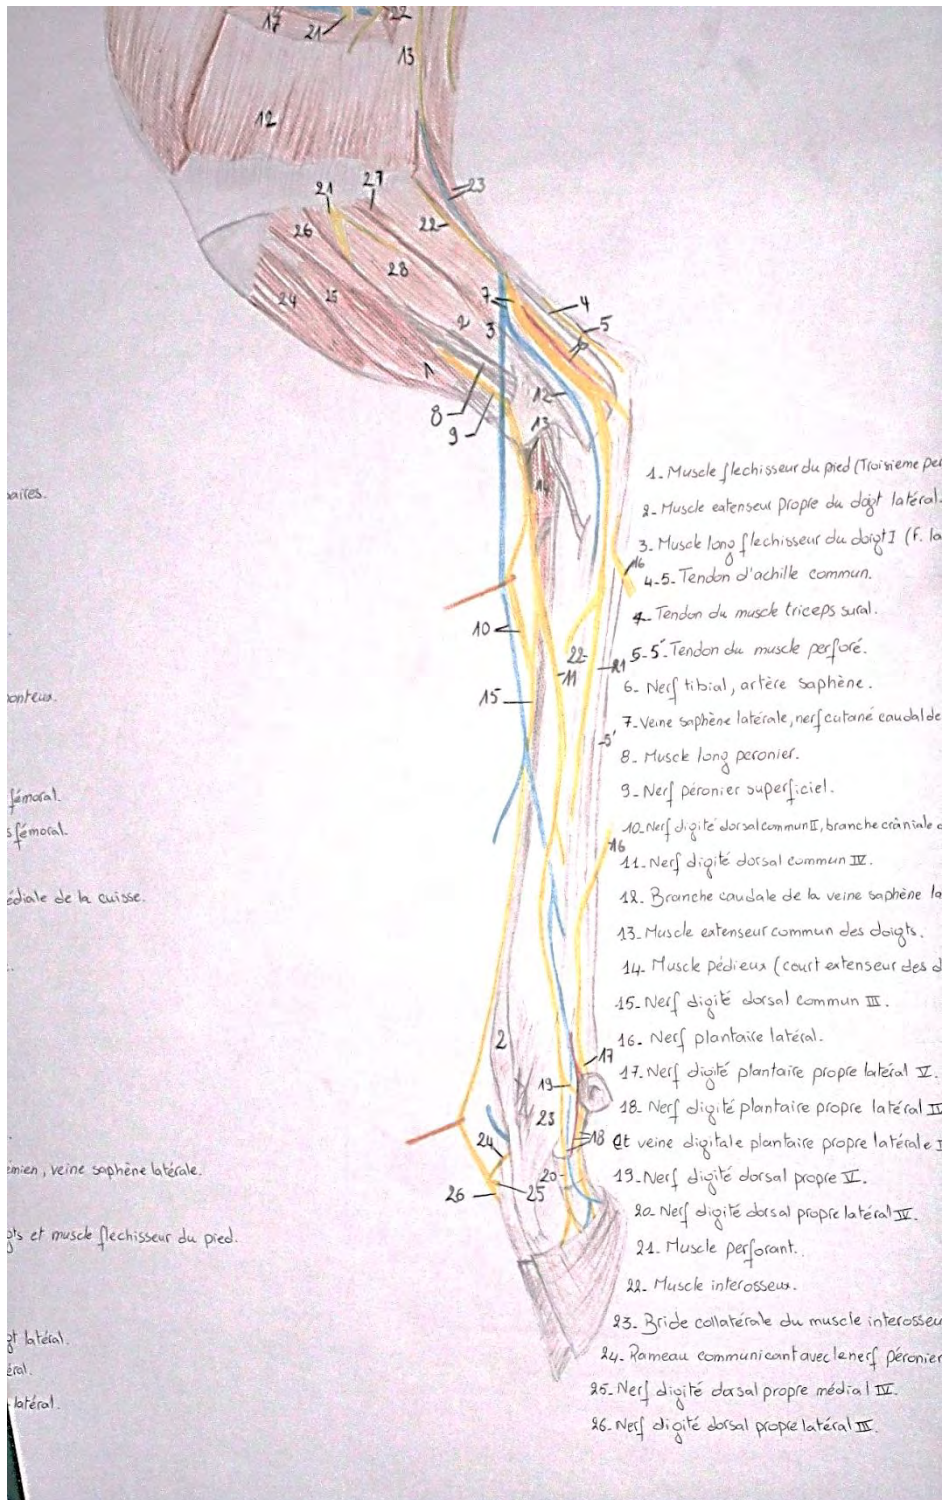 17
21
22
13
12
21
27
23
22
26
28
24
25
7
4
2
3
5
6
1
8
12
9
13
14
16
10
22
21
11
15
5'
16
2
17
19
23
18
24
20
26
25
aires.
onteux.
fémoral.
s fémoral.
édiale de la cuisse.
émien, veine saphène latérale.
gts et muscle flechisseur du pied.
gt latéral.
éral.
latéral.
1. Muscle flechisseur du pied (Troisieme per
2. Muscle extenseur propre du doigt latéral.
3. Muscle long flechisseur du doigt I (f. la
4-5. Tendon d'achille commun.
4. Tendon du muscle triceps sural.
5-5'. Tendon du muscle perforé.
6. Nerf tibial, artère saphène.
7. Veine saphène latérale, nerf cutané caudal de
8. Muscle long peronier.
9. Nerf péronier superficiel.
10. Nerf digité dorsal commun II, branche crâniale d
11. Nerf digité dorsal commun IV.
12. Branche caudale de la veine saphène la
13. Muscle extenseur commun des doigts.
14. Muscle pédieux (court extenseur des d
15. Nerf digité dorsal commun III.
16. Nerf plantaire latéral.
17. Nerf digité plantaire propre latéral V.
18. Nerf digité plantaire propre latéral IV
et veine digitale plantaire propre latérale I
19. Nerf digité dorsal propre V.
20. Nerf digité dorsal propre latéral IV.
21. Muscle perforant.
22. Muscle interosseux.
23. Bride collatérale du muscle interosseu
24. Rameau communicant avec le nerf péronier
25. Nerf digité dorsal propre médial IV.
26. Nerf digité dorsal propre latéral III.